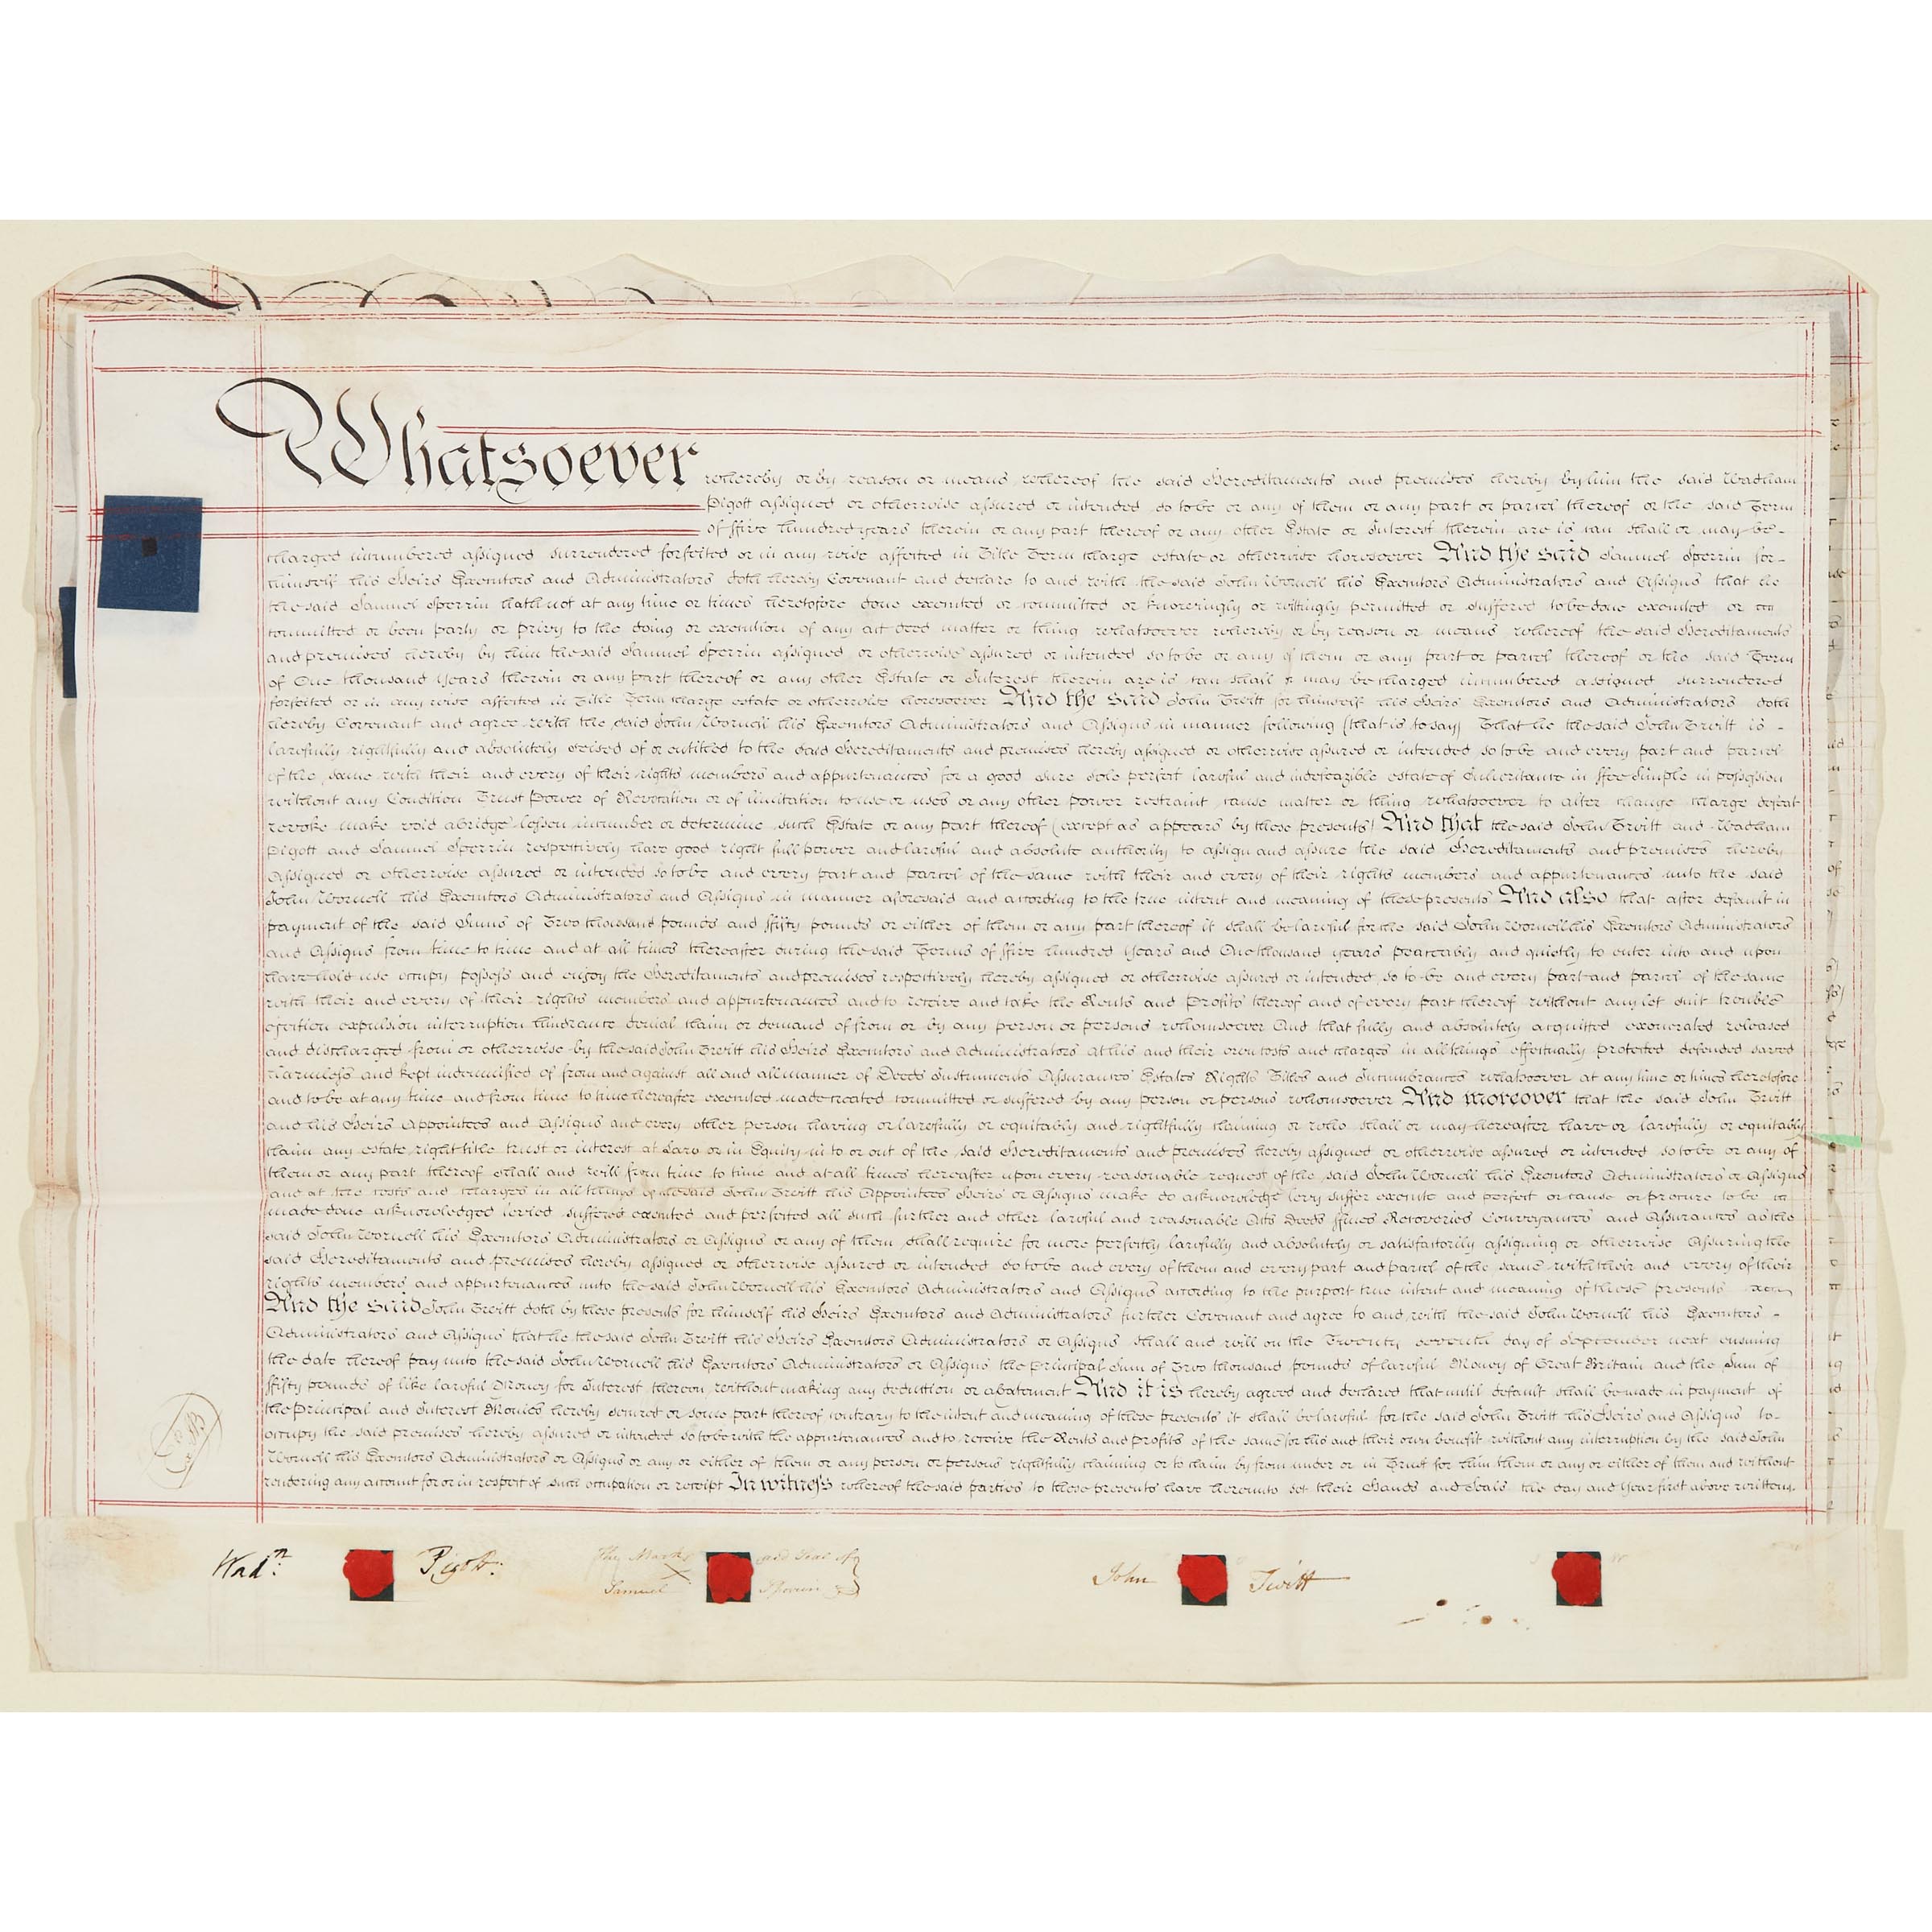 Whatsoever whereby or by reason or means whereof the said Hereditaments and premises hereby by him the said Wadham
Pigott assigned or otherwise assured or intended so to be or any of them or any part or parcel thereof or the said Term
of ffive hundred years therein or any part thereof or any other Estate or Interest therein are is can shall or may be-
charged incumbered assigned surrendered forfeited or in any wise affected in Title Term charge estate or otherwise howsoever And the said Samuel Sperrin for-
himself his Heirs Executors and Administrators doth hereby Covenant and declare to and with the said John Wornell his Executors Administrators and Assigns that he
the said Samuel Sperrin hath not at any time or times heretofore done executed or committed or knowingly or willingly permitted or suffered to be done executed or
committed or been party or privy to the doing or execution of any act deed matter or thing whatsoever whereby or by reason or means whereof the said Hereditaments
and premises hereby by him the said Samuel Sperrin assigned or otherwise assured or intended so to be or any of them or any part or parcel thereof or the said Term
of One thousand years therein or any part thereof or any other Estate or Interest therein are is can shall or may be charged incumbered assigned surrendered
forfeited or in any wise affected in Title Term charge estate or otherwise howsoever And the said John Twitt for himself his Heirs Executors and Administrators doth
hereby Covenant and agree with the said John Wornell his Executors Administrators and Assigns in manner following (that is to say) That he the said John Twitt is -
lawfully rightfully and absolutely seised of or entitled to the said Hereditaments and premises hereby assigned or otherwise assured or intended so to be and every part and parcel
of the same with their and every of their rights members and appurtenances for a good sure sole perfect lawful and indefeazible estate of Inheritance in ffee Simple in possession
without any Condition Trust Power of Revocation or of limitation to use or uses or any other power restraint cause matter or thing whatsoever to alter change charge defeat
revoke make void abridge lessen incumber or determine such Estate or any part thereof (except as appears by these presents) And that the said John Twitt and Wadham
Pigott and Samuel Sperrin respectively have good right full power and lawful and absolute authority to assign and assure the said Hereditaments and premises hereby
Assigned or otherwise assured or intended so to be and every part and parcel of the same with their and every of their rights members and appurtenances unto the said
John Wornell his Executors Administrators and Assigns in manner aforesaid and according to the true intent and meaning of these presents And also that after default in
payment of the said Sums of Two thousand pounds and ffifty pounds or either of them or any part thereof it shall be lawful for the said John Wornell his Executors Administrators
and Assigns from time to time and at all times thereafter during the said Terms of ffive hundred Years and One thousand years peaceably and quietly to enter into and upon
have hold use occupy possess and enjoy the Hereditaments and premises respectively hereby assigned or otherwise assured or intended so to be and every part and parcel of the same
with their and every of their rights members and appurtenances and to receive and take the Rents and Profits thereof and of every part thereof without any let suit trouble
eviction expulsion interruption hindrance denial claim or demand of from or by any person or persons whomsoever And that fully and absolutely acquitted exonerated released
and discharged from or otherwise by the said John Twitt his Heirs Executors and Administrators at his and their own costs and charges in all things effectually protected defended saved
harmless and kept indemnified of from and against all and all manner of Deeds Instruments Assurances Estates Rights Titles and Incumbrances whatsoever at any time or times heretofore
and to be at any time and from time to time hereafter executed made created committed or suffered by any person or persons whomsoever And moreover that the said John Twitt
and his Heirs Appointees and Assigns and every other person having or lawfully or equitably and rightfully claiming or who shall or may hereafter have or lawfully or equitably
claim any estate right title trust or interest at Law or in Equity in to or out of the said Hereditaments and premises hereby assigned or otherwise assured or intended so to be or any of
them or any part thereof shall and will from time to time and at all times hereafter upon every reasonable request of the said John Wornell his Executors Administrators or Assigns
and at the costs and charges in all things of the said John Twitt his Appointees Heirs or Assigns make do acknowledge levy suffer execute and perfect or cause or procure to be
made done acknowledged levied suffered executed and perfected all such further and other lawful and reasonable Acts Deeds ffines Recoveries Conveyances and Assurances as the
said John Wornell his Executors Administrators or Assigns or any of them shall require for more perfectly lawfully and absolutely or satisfactorily assigning or otherwise Assuring the
said Hereditaments and premises hereby assigned or otherwise assured or intended so to be and every of them and every part and parcel of the same with their and every of their
rights members and appurtenances unto the said John Wornell his Executors Administrators and Assigns according to the purport true intent and meaning of these presents
And the said John Twitt doth by these presents for himself his Heirs Executors and Administrators further Covenant and agree to and with the said John Wornell his Executors -
Administrators and Assigns that he the said John Twitt his Heirs Executors Administrators or Assigns shall and will on the Twenty seventh day of September next ensuing
the date hereof pay unto the said John Wornell his Executors Administrators or Assigns the Principal Sum of Two thousand pounds of lawful Money of Great Britain and the Sum of
ffifty pounds of like lawful Money for Interest thereon without making any deduction or abatement And it is hereby agreed and declared that until default shall be made in payment of
the Principal and Interest Monies hereby secured or some part thereof contrary to the intent and meaning of these presents it shall be lawful for the said John Twitt his Heirs and Assigns to-
occupy the said premises hereby assured or intended so to be with the appurtenances and to receive the Rents and profits of the same for his and their own benefit without any interruption by the said John
Wornell his Executors Administrators or Assigns or any or either of them or any person or persons rightfully claiming or to claim by from under or in Trust for him them or any or either of them and without
rendering any account for or in respect of such occupation or receipt In witness whereof the said parties to these presents have hereunto set their Hands and Seals the day and Year first above written.
Wadm. Pigott:
The Mark X and Seal of
Samuel Sperrin
John Twitt